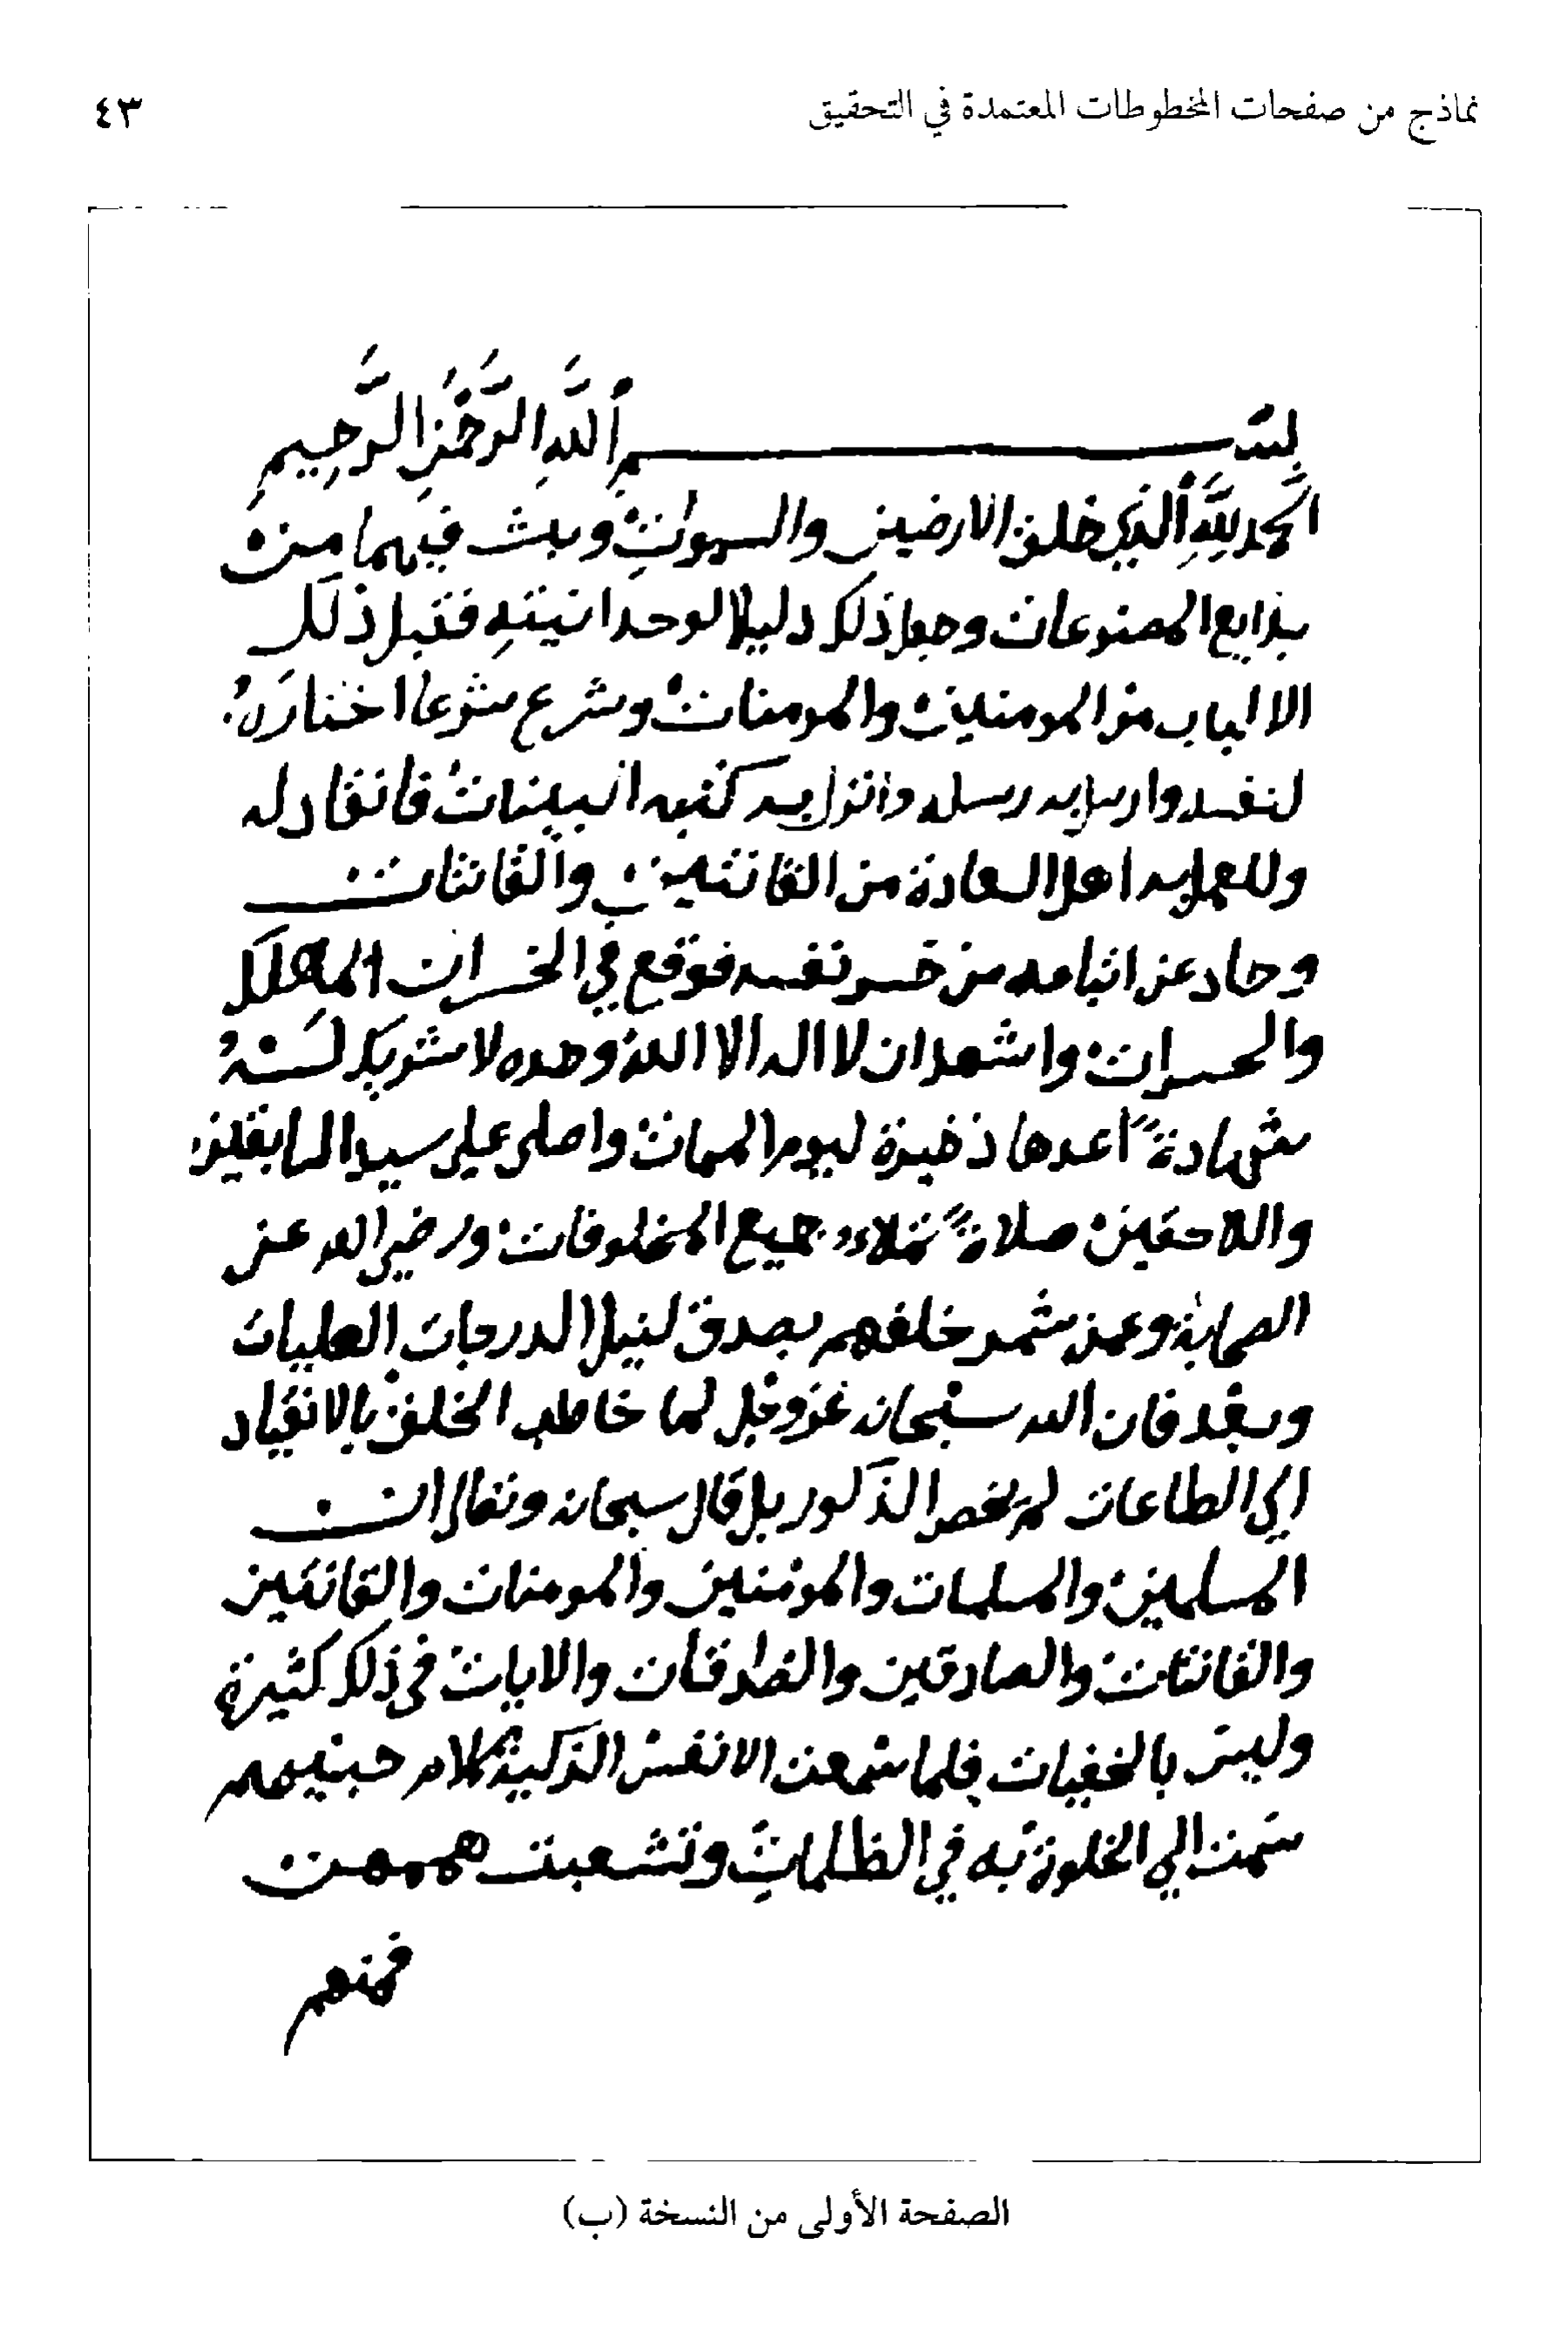 نماذج من صفحات المخطوطات المعتمدة في التحقيق
٤٣
بسم اللهِ الرَّحْمٰنِ الرَّحِيمِ
الحمد للهِ الذي خلق الارضين والسموات وبث فيهما من
بدايع المصنوعات وجعل ذلك دليلا لوحدانيتهِ فقبل ذلك
الالباب من المومنين والمومنات وشرع شرعا اختارَهُ
لنفسه وارسل به رسله وانزل به كتبه البينات فانقاد له
وللعمل به اهل السعادة من القانتين والقانتات
وحاد عن اتباعه من خسر نفسه فوقع في الخسران المهلك
والحسرات واشهد ان لا اله الا الله وحده لا شريك لَهُ
شهادةً اعدها ذخيرة ليوم الممات واصلى على سيد السابقين
واللاحقين صلاةً تملاء جميع المخلوقات ورضي الله عن
الصحابة وعمن شمر خلفهم بصدق لنيل الدرجات العليات
وبعد فان الله سبحانه عز وجل لما خاطب الخلق بالانقياد
الى الطاعات لم يخص الذكور بل قال سبحانه وتعالى ان
المسلمين والمسلمات والمؤمنين والمومنات والقانتين
والقانتات والصادقين والصادقات والايات في ذلك كثيرة
وليس بالخفيات فلما سمعت الانفس الزكية كلام حبيبهم
سمت الى الخلوة به في الظلمات وتشعبت هممهن
فمنهم
الصفحة الأولى من النسخة (ب)